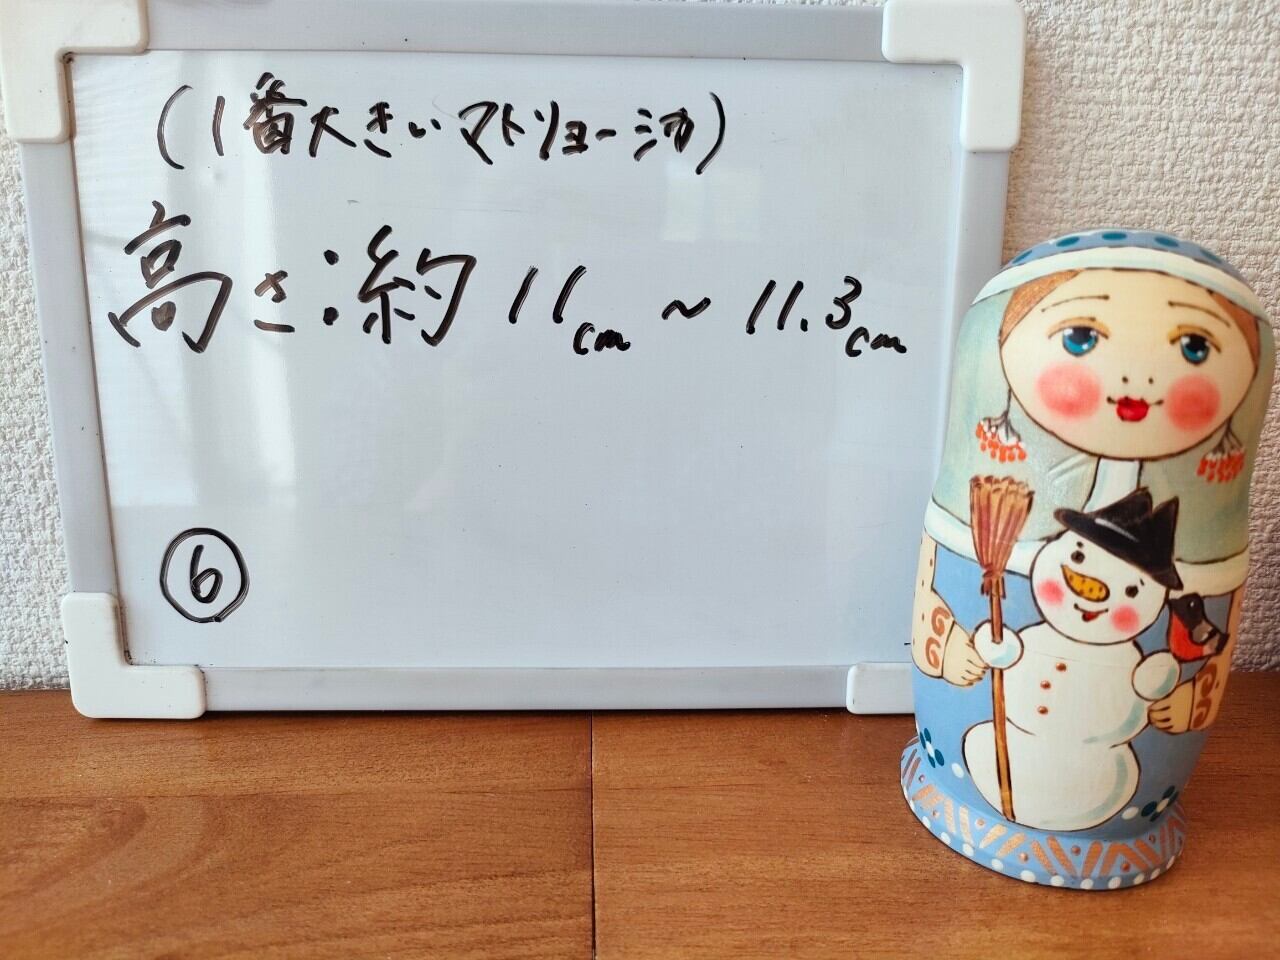 (1番大きいマトリョーシカ)
高さ:約 11cm ~ 11.3cm
⑥